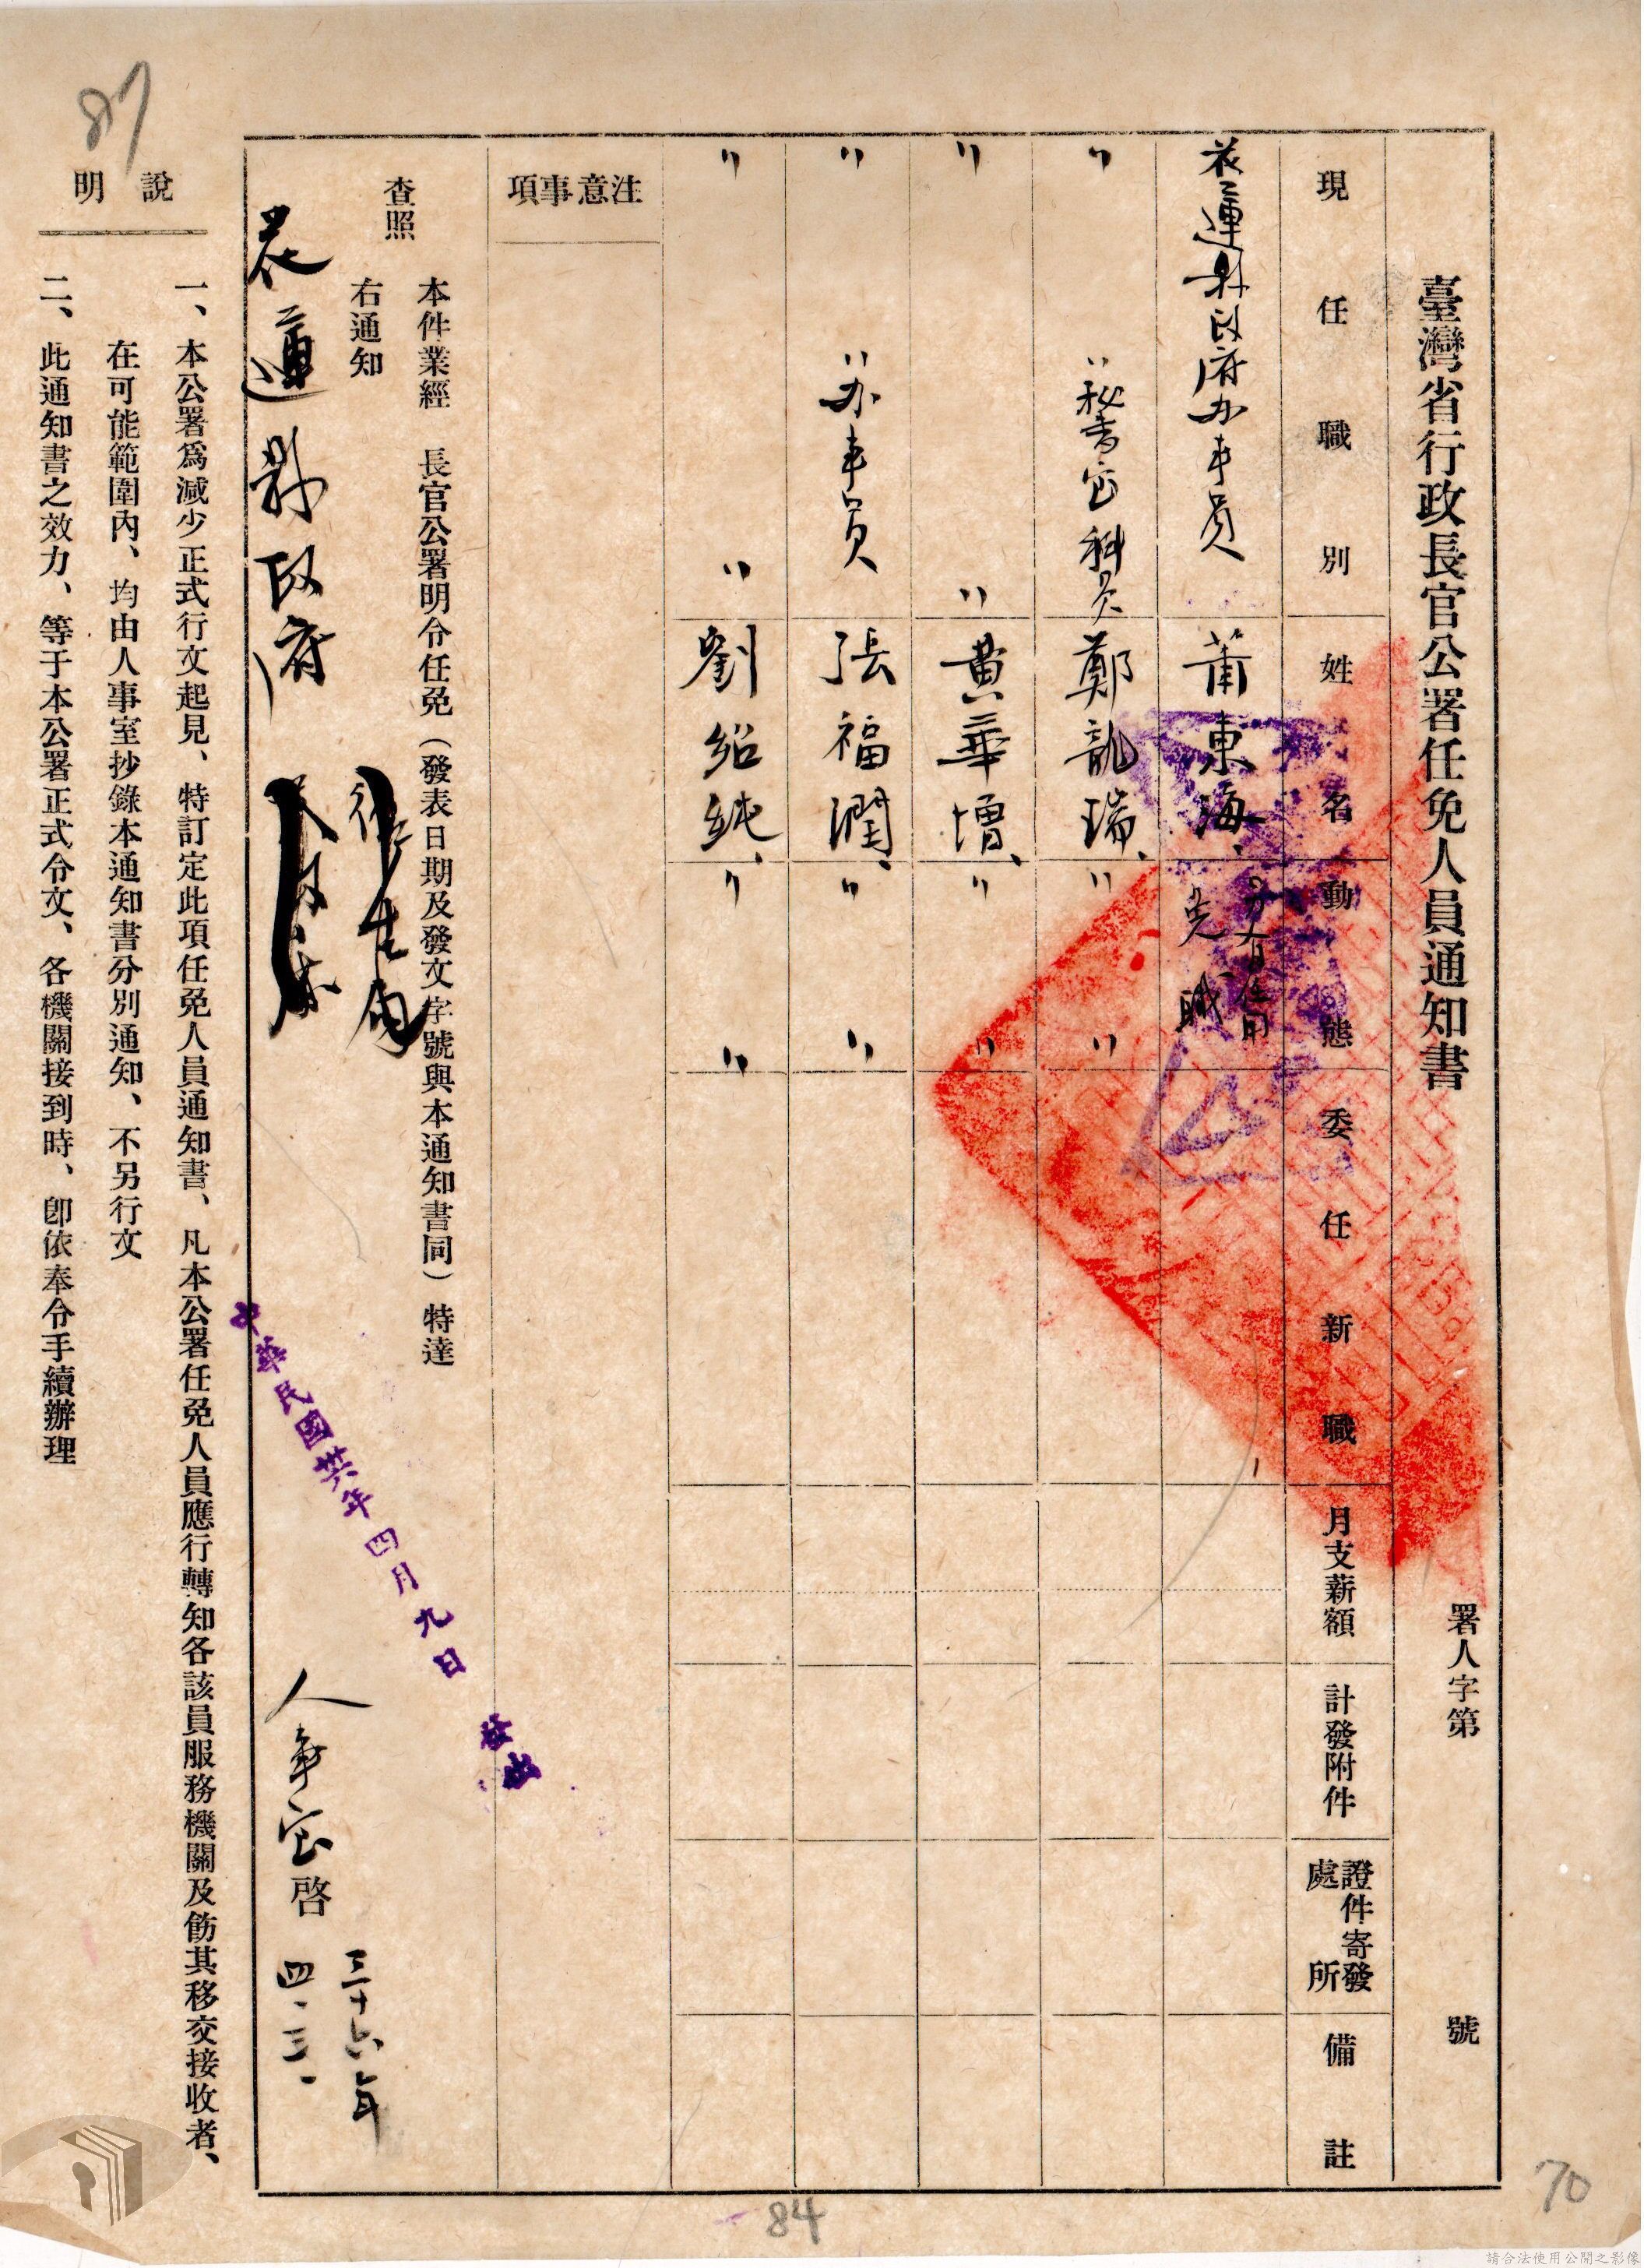 臺灣省行政長官公署任免人員通知書
署人字第 號
現任職別
姓名
動態
委任新職
月支薪額
計發附件
證件寄發處所
備註
花蓮縣政府办事員
莆東海、
另有任用
免職
〃
〃秘書室科員
鄭龍瑞、
〃
〃
〃
〃
黃華增、
〃
〃
〃
〃办事員
張福潤、
〃
〃
〃
〃
劉紹純、
〃
〃
注意事項
本件業經 長官公署明令任免（發表日期及發文字號與本通知書同）特達
查照
右通知
花蓮縣政府
人事室啓
三十六年
四、三一
中華民國卅六年四月九日
發出
說明
一、本公署爲減少正式行文起見、特訂定此項任免人員通知書、凡本公署任免人員應行轉知各該員服務機關及飭其移交接收者、
在可能範圍內、均由人事室抄錄本通知書分別通知、不另行文
二、此通知書之效力、等于本公署正式令文、各機關接到時、卽依奉令手續辦理
87
84
70
請合法使用公開之影像